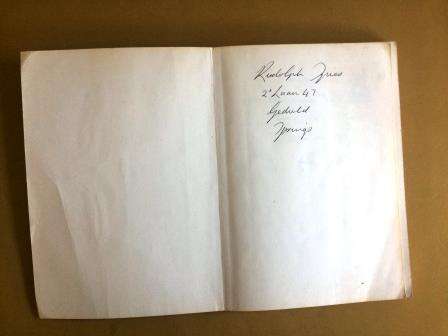 Rudolph Fries
2e Laan 47
Geduld
Springs